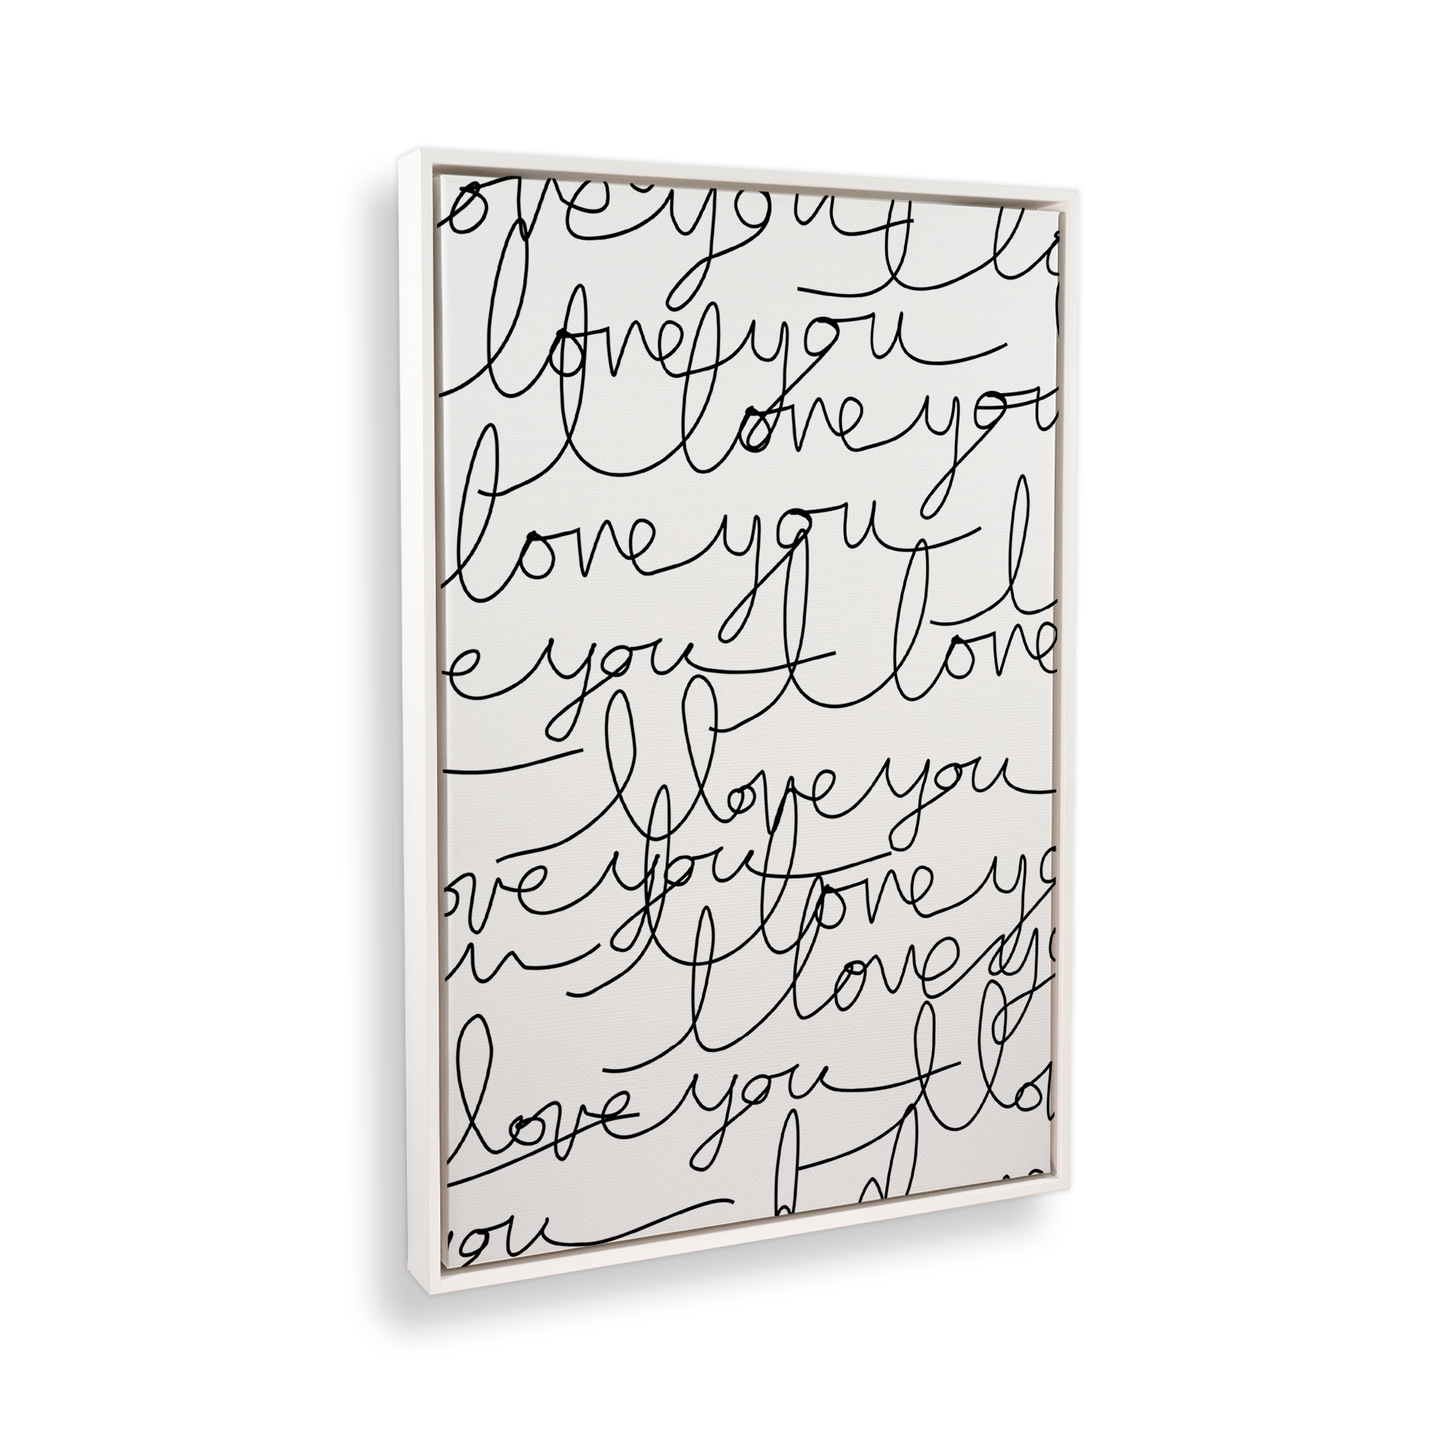 ove you I lo
love you
I love you
love you
e you I love
I love you
ove you I love yo
u I love yo
love you I lo
you I l